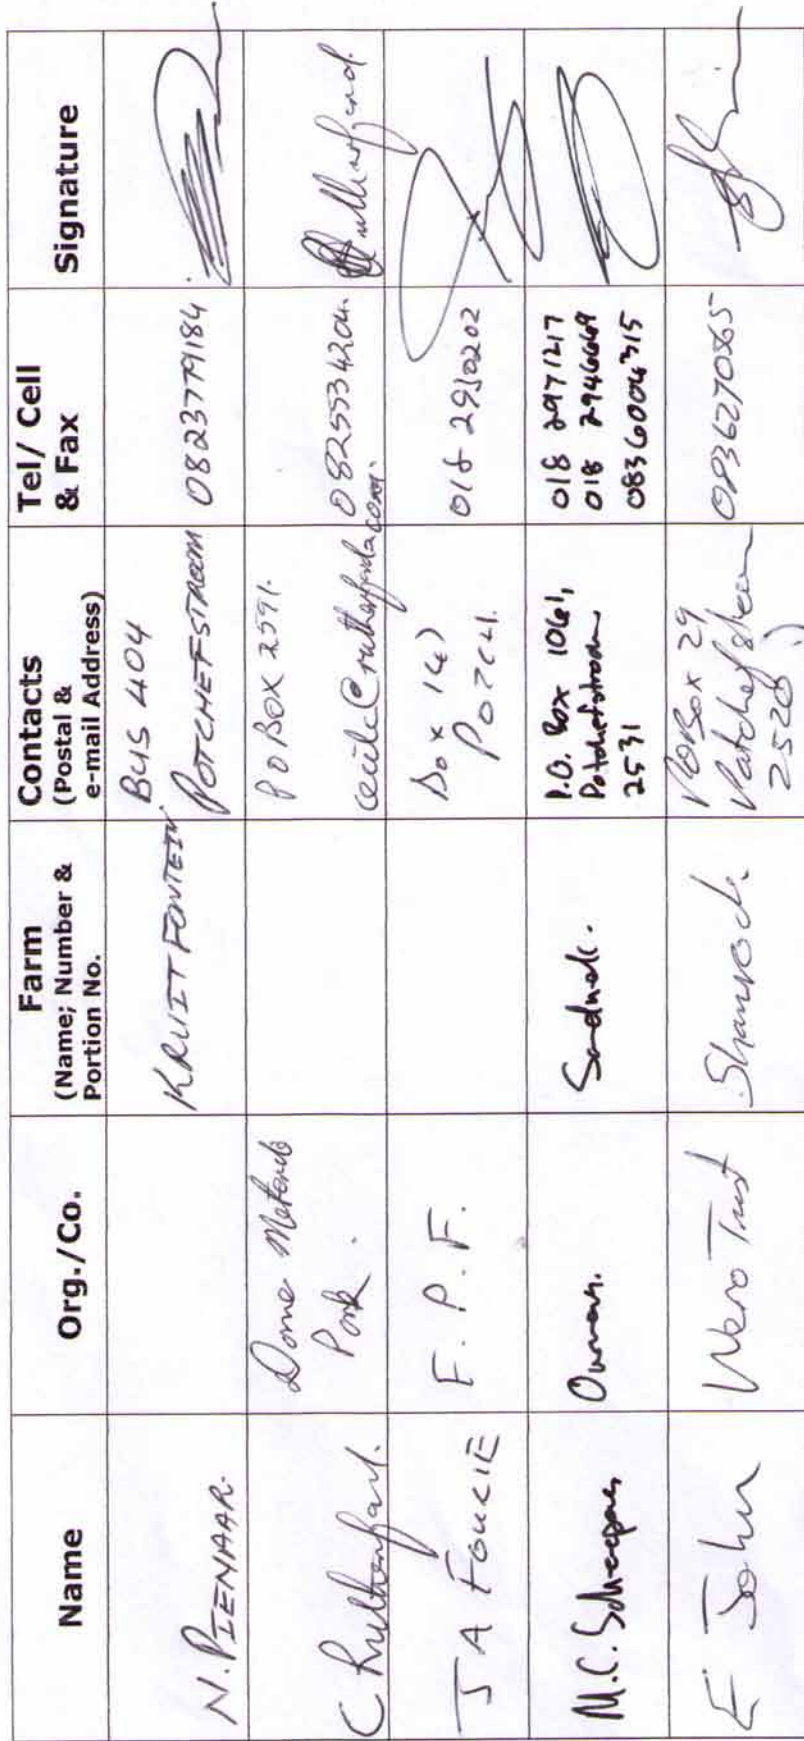 Name
Org./Co.
Farm
(Name; Number &
Portion No.
Contacts
(Postal &
e-mail Address)
Tel/ Cell
& Fax
Signature
N. PIENAAR.
KRUITFONTEIN
BUS 404
POTCHEFSTROOM
0823779184
C Rutherford.
Dome
Park.
P O BOX 2591.
J A FOURIE
F. P. F.
Box
POTCH.
018 2930202
M.C. Scheepers
Owner.
P.O. Box 1061,
Potchefstroom
2531
018 2971217
018 2946669
E John
Wero Trust
Shamrock
PO Box 29
Potchefstroom
2520
0836270565